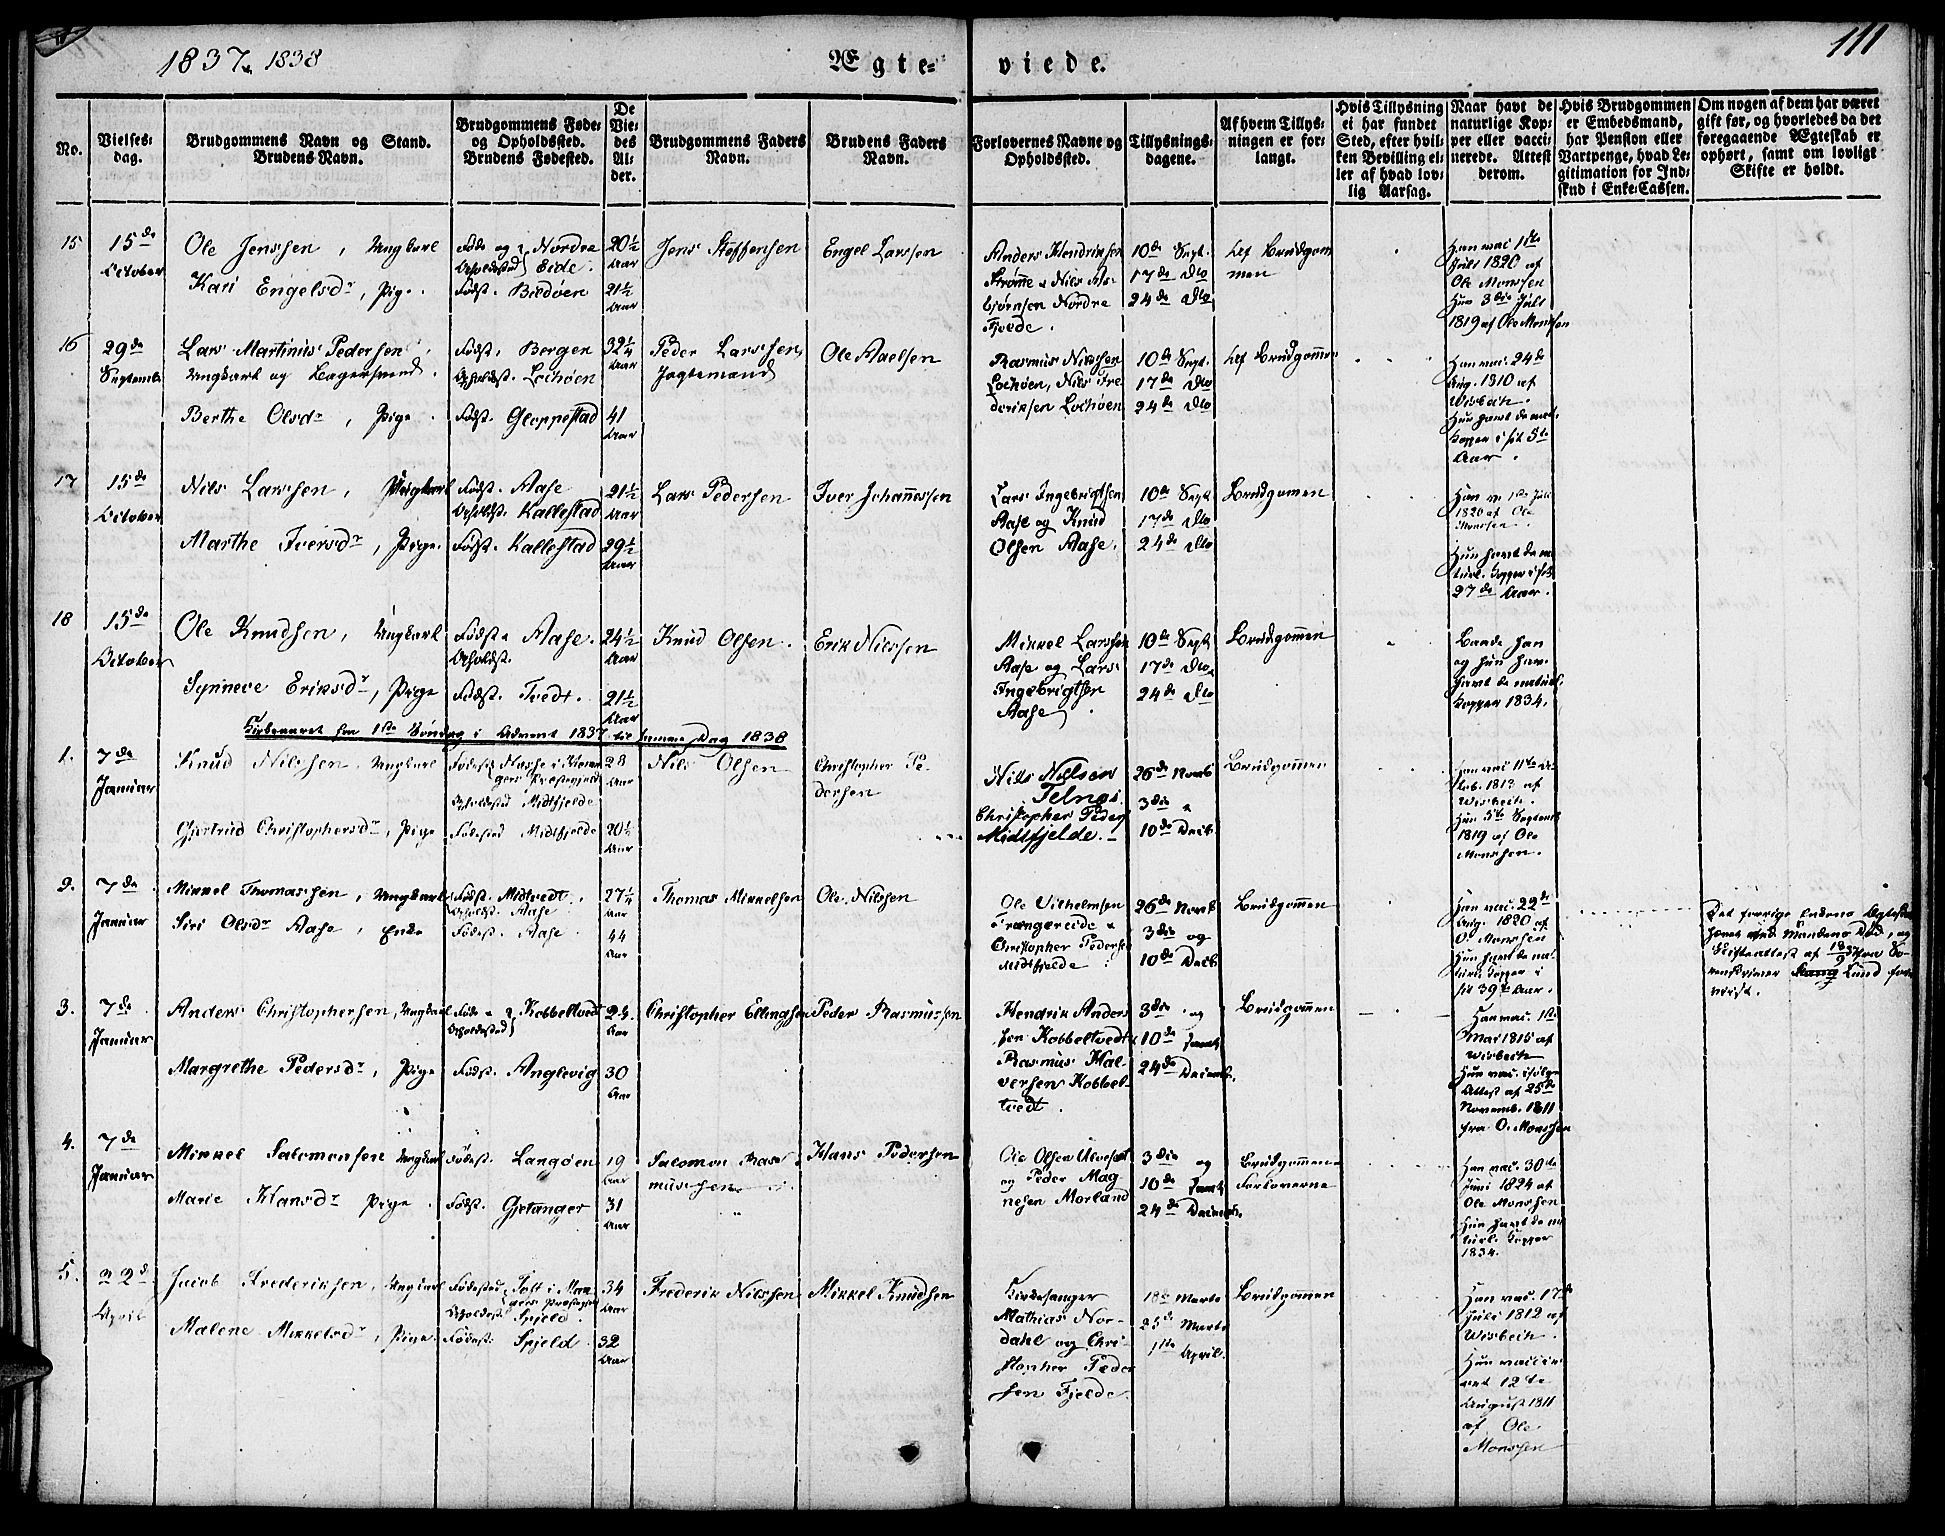 1837 & 1838
Egte=
viede.
111
No.
Vielses-
dag.
Brudgommens Navn og Stand.
Brudens Navn.
Brudgommens Føde-
og Opholdssted.
Brudens Fødested.
De
Vie-
des
Al-
der.
Brudgommens Faders
Navn.
Brudens Faders
Navn.
Forlovernes Navne og
Opholdssted.
Tillysnings-
dagene.
Af hvem Tillys-
ningen er for-
langt.
Hvis Tillysning
ei har fundet
Sted, efter hvil-
ken Bevilling el-
ler af hvad lov-
lig Aarsag.
Naar havt de
naturlige Kop-
per eller vacci-
nerede. Attest
derom.
Hvis Brudgommen
er Embedsmand,
har Pension eller
Vartpenge, hvad Le-
gitimation for Ind-
skud i Enke-Cassen.
Om nogen af dem har været
gift før, og hvorledes da det
foregaaende Ægteskab er
ophørt, samt om lovligt
Skifte er holdt.
15
15de
October
Ole Jenssen, Ungkarl
Kari Engelsdr, Pige.
Føde og Nordre
Opholdssted Eide.
Fødst. Bødøen
20½
Aar
21½
Aar
Jens Steffensen
Engel Larssen
Anders Hendriksen
Strømme & Nils As-
bjørnsen Nordre
Fjelde.
10de Sept.
17de Dto
24de Dto
Af Brudgom
men
Han vac. 1ste
Juli 1820 af
Ole Monssen
Hun 3die Juli
1819 af Ole Monssen
16
29de
Septemb.
Lars Martinus Pedersen,
Ungkarl og Bagersvend.
Berthe Olsdr, Pige.
Fødst. Bergen
Opholdst. Lochøen
Fødst. Gloppestad
32¼
Aar
41
Aar
Peder Larssen
Jagtemand
Ole Aaelsen
Rasmus Nilssen
Lochøen, Nils Fre
deriksen Lochøen
10de Sept.
17de Dto
24de Dto
Af Brudgommen
Han vac. 24de
Aug. 1810 af
Wisbech.
Hun havt de nat.
Kopper i sit 5te
Aar.
17
15de
October
Nils Larssen, Ungkarl
Marthe Iversdr, Pige.
Fødst. Aase
Opholdst. Kallestad
Fødst. Kallestad
21½
Aar
29½
Aar
Lars Pedersen
Iver Johannessen
Lars Ingebrigtsen
Aase og Knud
Olsen Aase.
10de Sept
17de Dto
24de Dto
Brudgommen
Han v. 1ste Juli
1820 af Ole
Monssen.
Hun havt de na
turl. Kopper i sit
27de Aar.
18
15de
October
Ole Knudsen, Ungkarl
Synneve Eriksdr, Pige
Fødst & Aase.
Opholdst.
Fødst. Tvedt.
24½
Aar
21½
Aar
Knud Olsen.
Erik Nilssen
Mikkel Larssen
Aase og Lars
Ingebrigtsen
Aase
10de Sept
17de Dto
24de Dto
Brudgommen
Baade han
og hun har
havt de naturl.
Kopper 1834.
Kirkeaaret fra 1ste Søndag i Advent 1837 til samme Dag 1838
1.
7de
Januar
Knud Nilssen, Ungkarl
Gjertrud Christophersdr, Pige
Opholdssted Midtfjelde
Fødested Midtfjelde
28
Aar
20½
Aar
Nils Olsen
Christopher Pe-
dersen
Nils Nilsen
Telnes.
Christopher Peders
Midtfjelde.
26de Novb
3die &
10de Decb.
Brudgommen
Han vac. 11te
1813 af
Wisbech.
Hun 5te Septemb
1819 af Ole
Monssen.
2.
7de
Januar
Mikkel Thomassen, Ungkarl
Siri Olsdr Aase, Enke
Fødst. Midtvedt.
Opholdst. Aase.
Fødest. Aase.
27¼
Aar
44
Aar
Thomas Mikkelsen
Ole Nilssen
Ole Vilhelmsen
Trængereide &
Christopher Peders
Midtfjelde
26de Novb
3die og
10de Decb.
Brudgommen
Han vac. 22de
Aug. 1820 af
O. Monssen
Hun havt de nat
turl. Kopper i
sit 39te Aar.
Det forrige Enkens Ægteskab
hævet ved Mandens Død, og
Skifteattest af fra So-
renskriver Lund fore
viist.
3.
7de
Januar
Anders Christophersen, Ungkarl
Margrethe Pedersdr, Pige
Føde & Kobbeltvedt
Opholdssted
Fødst. Anglevig
24.
Aar
30
Aar
Christopher Ellingsen
Peder Rasmussen
Hendrik Anders
sen Kobbeltvedt
Rasmus Hal-
versen Kobbel-
tvedt.
3die og
10de samt
24de Decemb.
Brudgommen
Han vac. 1ste
Mai 1815 af
Wisbech
Hun vac. ifølge
Attest af 25de
Novemb. 1811
fra O. Monssen
4.
7de
Januar
Mikkel Salomonsen Ungkarl
Marie Hansdr Pige.
Fødest. Langøen
Fødst. Gjetanger
19
Aar
31
Aar
Salomon Ras-
mussen
Hans Pedersen
Ole Olsen Ulveset
og Peder Mag-
nesen Morland
3die og
10de samt
24de Decemb.
Brudgommen
Forloverne
Han vac. 30te
Juni 1824 af
Ole Monssen
Hun havt de na
turl. Kopper
1834.
5.
22de
April
Jacob Frederiksen, Ungkarl
Malene Mikkelsdr, Pige.
Opholdest. Spjeld.
Fødest. Spjeld
34
Aar
32
Aar
Frederik Nilssen
Mikkel Knudsen
Kirkesanger
Mathias Nor-
dahl og Chri-
stopher Peder
sen Fjelde.
18de Marts
25de Marts
1ste April.
Brudgommen
Han vac. 17de
Juli 1812 af
Wisbech.
Hun vaccin
eret 12te
August 1811
af Ole
Monssen